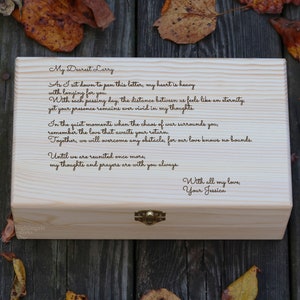 My Dearest Larry
As I sit down to pen this letter, my heart is heavy
with longing for you.
With each passing day, the distance between us feels like an eternity,
yet your presence remains ever vivid in my thoughts.
In the quiet moments when the chaos of war surrounds you,
remember the love that awaits your return.
Together, we will overcome any obstacle, for our love knows no bounds.
Until we are reunited once more,
my thoughts and prayers are with you always.
With all my love,
Your Jessica